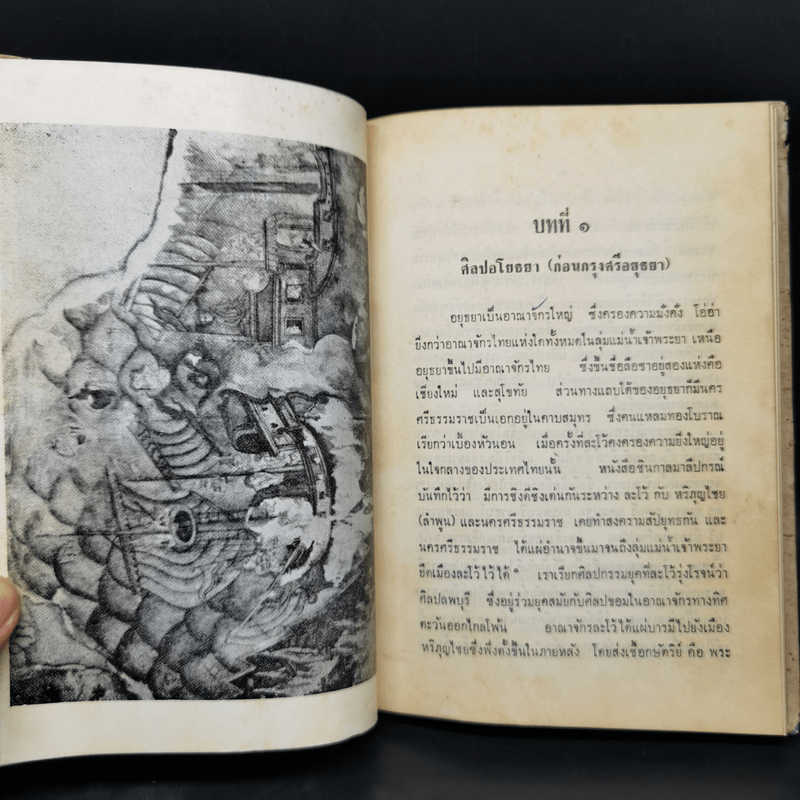 บทที่ ๑
ศิลปอโยธยา (ก่อนกรุงศรีอยุธยา)
อยุธยาเป็นอาณาจักรใหญ่ ซึ่งครองความมั่งคั่ง โอ่อ่า
ยิ่งกว่าอาณาจักรไทยแห่งใดทั้งหมดในลุ่มแม่น้ำเจ้าพระยา เหนือ
อยุธยาขึ้นไปมีอาณาจักรไทย ซึ่งขึ้นชื่อลือชาอยู่สองแห่งคือ
เชียงใหม่ และสุโขทัย ส่วนทางแถบใต้ของอยุธยาก็มีนคร
ศรีธรรมราชเป็นเอกอยู่ในคาบสมุทร ซึ่งคนแหลมทองโบราณ
เรียกว่าเบื้องหัวนอน เมื่อครั้งที่ละโว้คงครองความยิ่งใหญ่อยู่
ในใจกลางของประเทศไทยนั้น หนังสือชินกาลมาลีปกรณ์
บันทึกไว้ว่า มีการชิงดีชิงเด่นกันระหว่าง ละโว้ กับ หริภุญไชย
(ลำพูน) และนครศรีธรรมราช เคยทำสงครามสัปยุทธกัน และ
นครศรีธรรมราช ได้แผ่อำนาจขึ้นมาจนถึงลุ่มแม่น้ำเจ้าพระยา
ยึดเมืองละโว้ไว้ได้ เราเรียกศิลปกรรมยุคที่ละโว้รุ่งโรจน์ว่า
ศิลปลพบุรี ซึ่งอยู่ร่วมยุคสมัยกับศิลปขอมในอาณาจักรทางทิศ
ตะวันออกไกลโพ้น อาณาจักรละโว้ได้แผ่บารมีไปยังเมือง
หริภุญไชยซึ่งพึ่งตั้งขึ้นในภายหลัง โดยส่งเชื้อกษัตริย์ คือ พระ